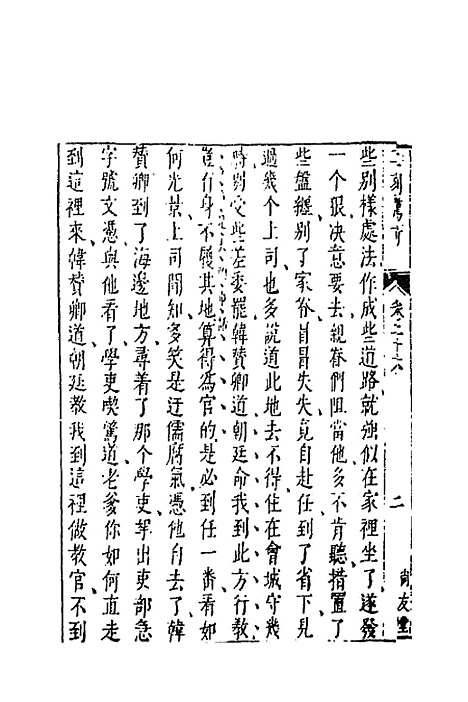 二刻驚奇 卷之二十六 二 尚友堂
些別樣處法作成些道路就強似在家裡坐了遂發
一个狠决意要去親眷們阻當他多不肯聽措置了
些盤纏別了家眷冒冒失失竟自赴任到了省下見
過幾个上司也多說道此地去不得住在會城守幾
時別受些差委罷韓贊卿道朝廷命我到此方行教
豈有身不履其地算得爲官的是必到任一番看如
何光景上司聞知多笑是迂儒腐氣憑他自去了韓
贊卿到了海邊地方尋着了那个學吏拏出吏部急
字號文憑與他看了學吏喫驚道老爹你如何直走
到這裡來韓贊卿道朝廷教我到這裡做教官不到